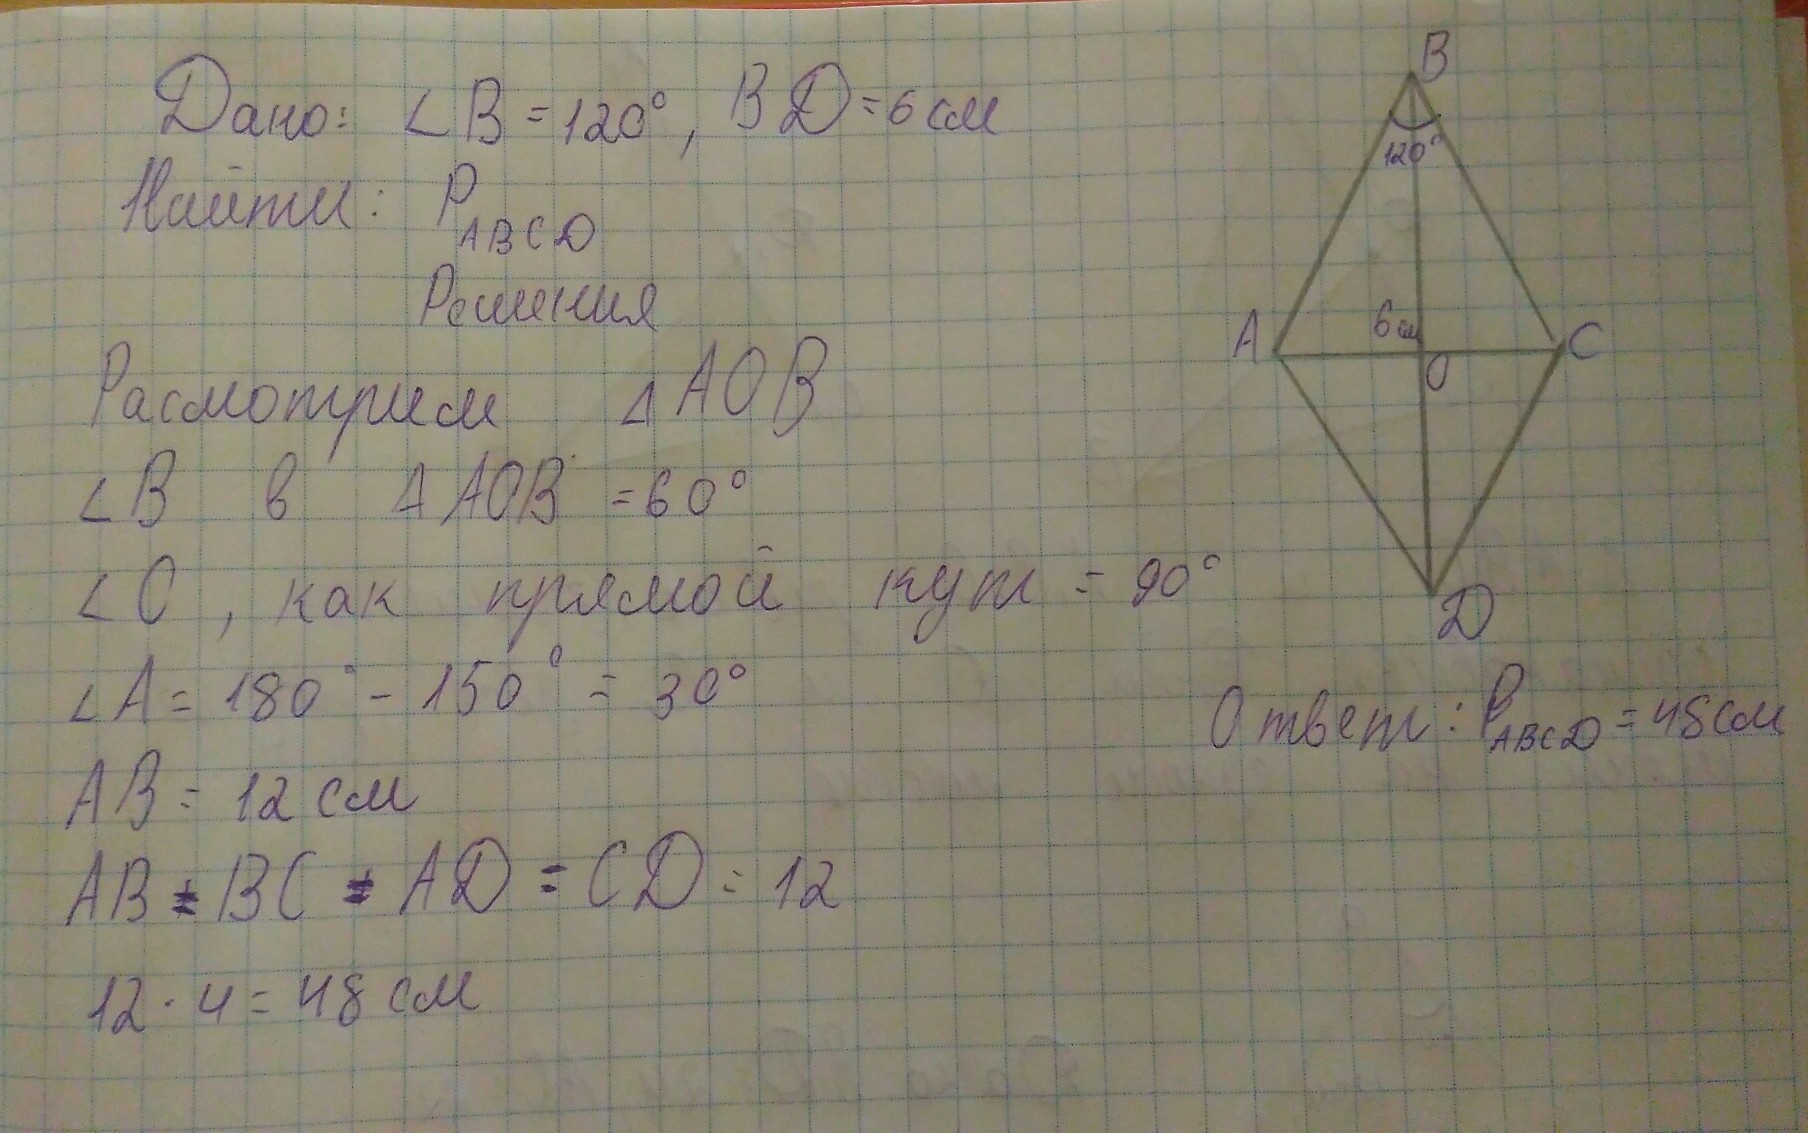 Дано: ∠B = 120°, BD = 6 см
Найти: P ABCD
Решения
Расмотрием ∆ AOB
∠B в ∆ AOB = 60°
∠O, как прямой кут = 90°
∠A = 180° - 150° = 30°
AB = 12 см
AB = BC = AD = CD = 12
12 · 4 = 48 см
B
120°
A
6 см
O
C
D
Ответ: P ABCD = 48 см